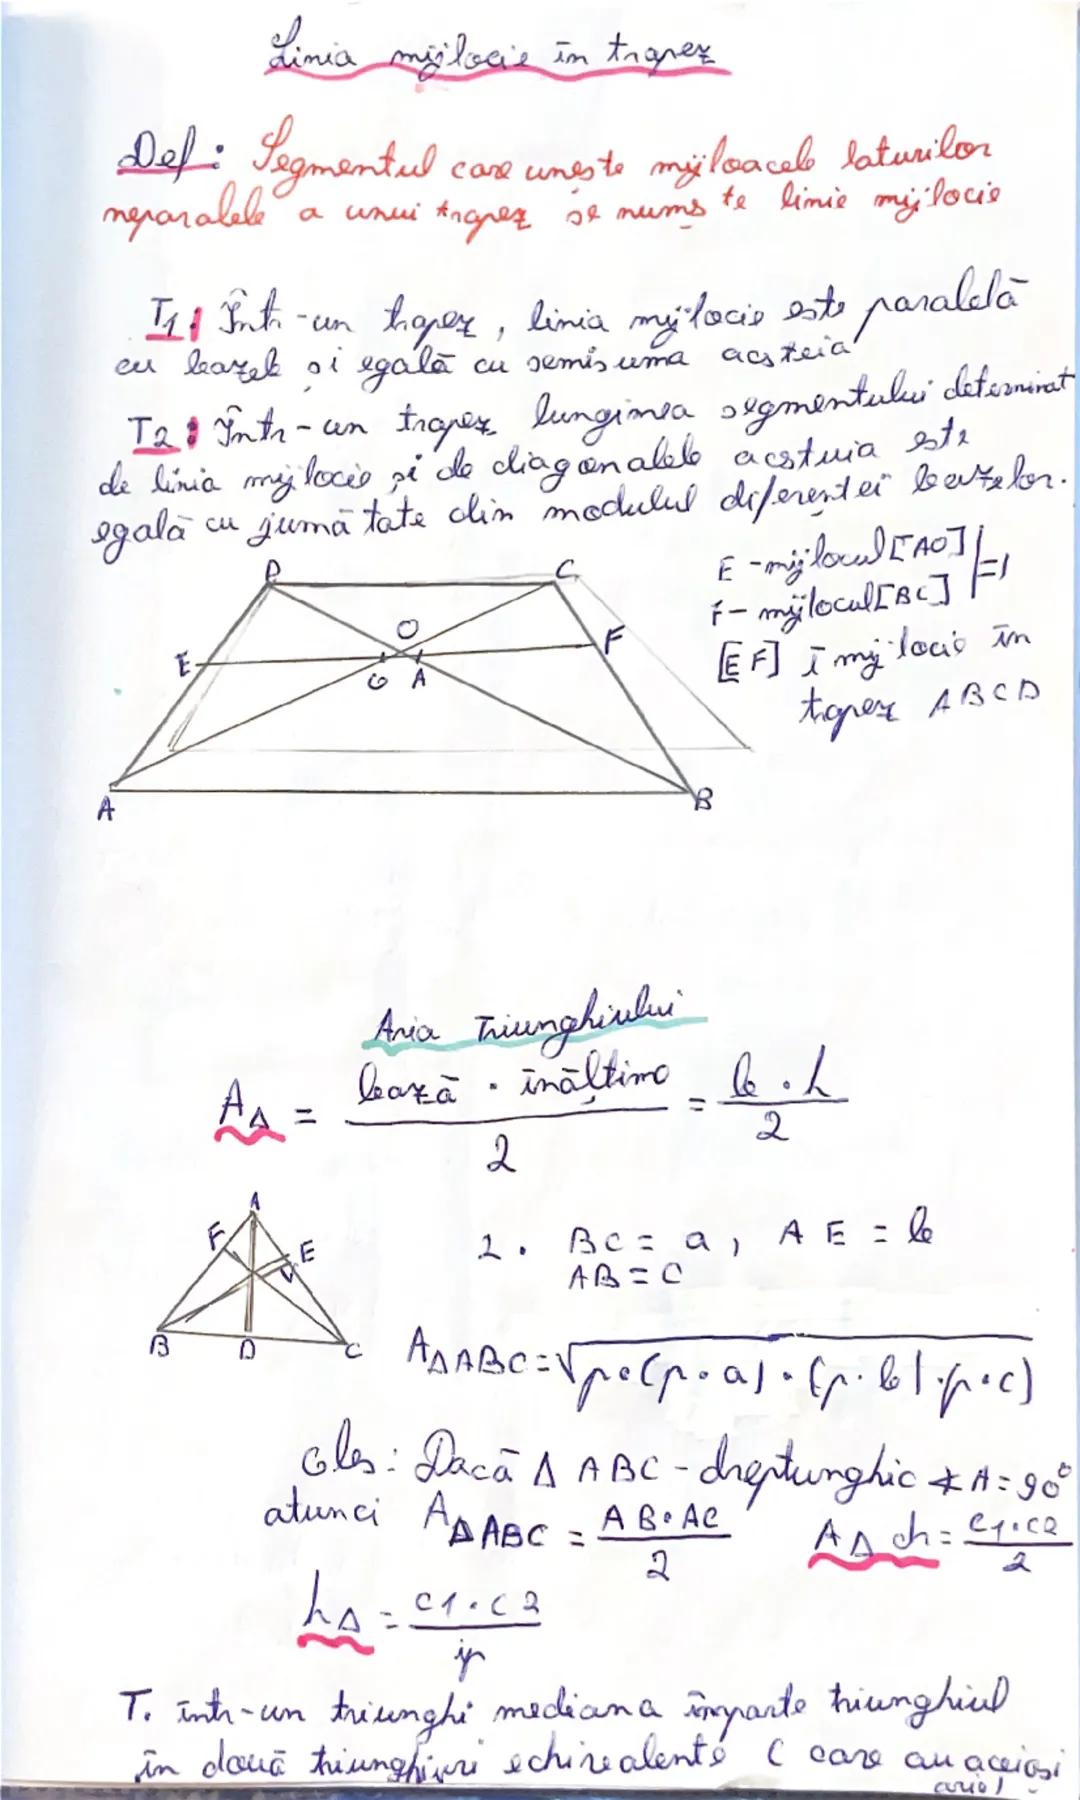 Linia mijlocie în trapez
Def: Segmentul care unește mijloacele laturilor
neparalele a unui trapez se numește linie mijlocie
T1: Într-un trapez, linia mijlocie este paralelă
cu bazele și egală cu semisuma acsteia
T2: Într-un trapez lungimea segmentului determinat
de linia mijlocie și de diagonalele acstuia este
egală cu jumătate din modulul diferenței bazelor.
E - mijlocul [AD] | =>
F - mijlocul [BC]
[EF] mijlocie în
trapez ABCD
D C
O
E F
G A
A B
Aria Triunghiului
A△ = bază · înălțime / 2 = b · h / 2
A
F E
B D C
2. BC = a, AE = b
AB = C
A△ABC = √p·(p·a)·(p·b)·p·c)
Obs: Dacă △ABC - dreptunghic ∢A=90°
atunci A△ABC = AB·AC / 2 A△ dr = c1·c2 / 2
h△ = c1·c2 / ip
T. într-un triunghi mediana împarte triunghiul
în două triunghiuri echivalente (care au aceiași
arie)